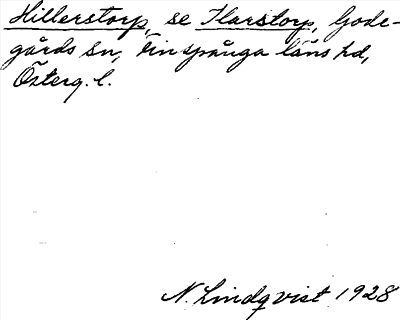 Hillerstorp, se Ilarstorp, Gode-
gårds sn, Finspånga läns hd,
Österg. l.
N. Lindqvist 1928